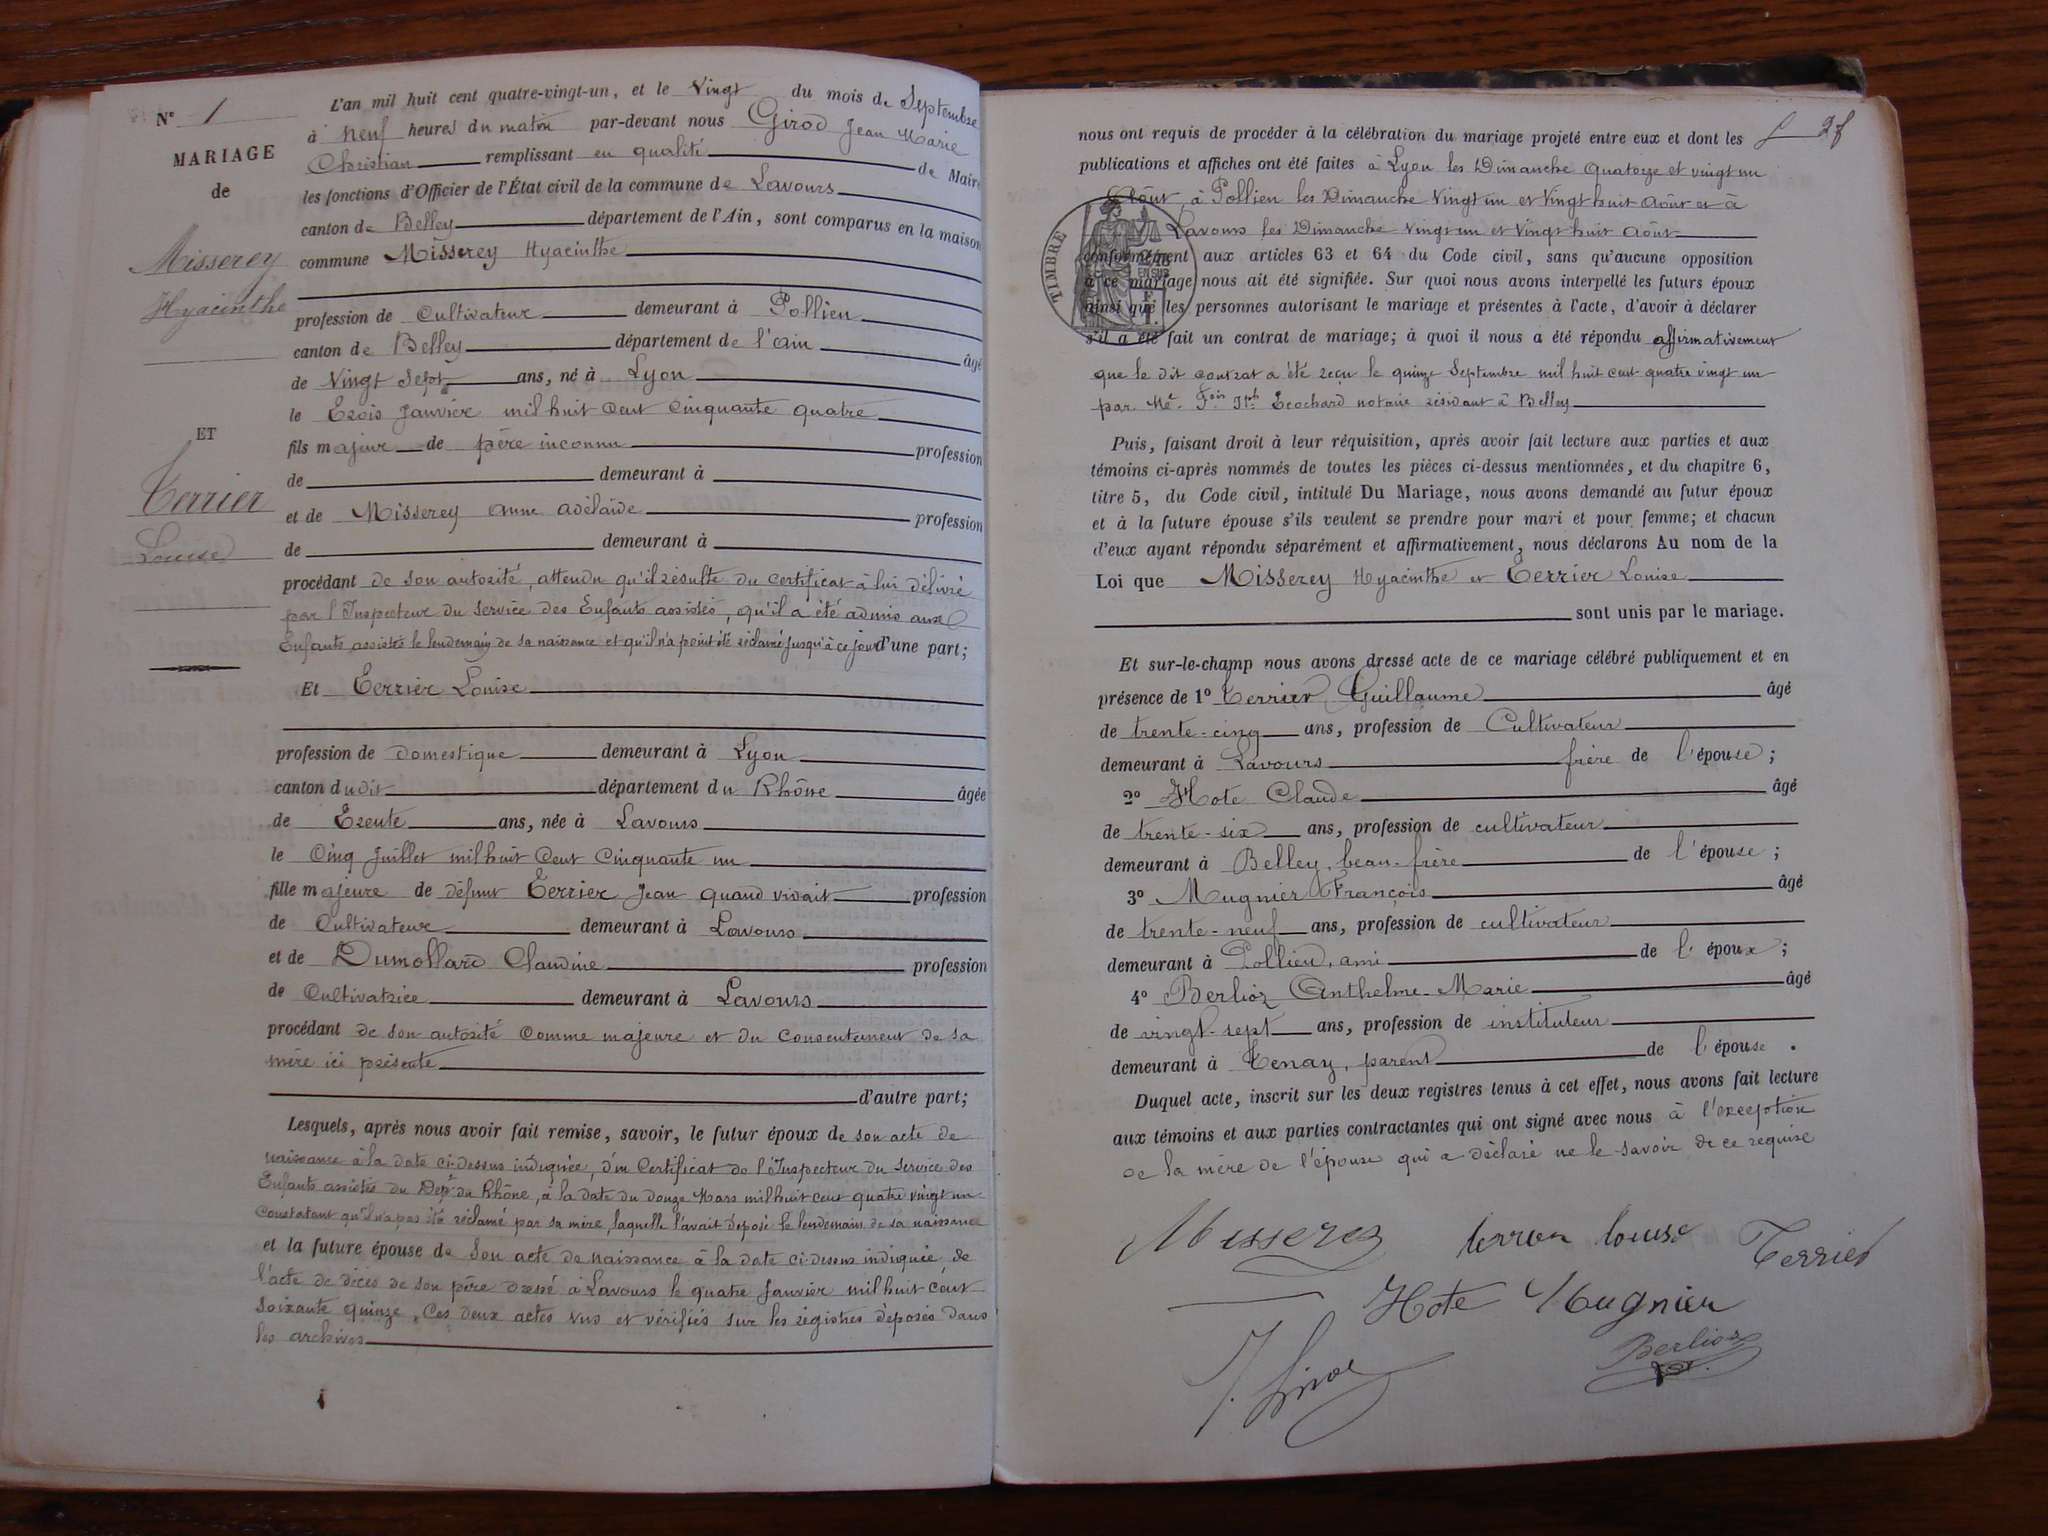 N° 1
MARIAGE
de
Misserey
Hyacinthe
ET
Terrier
Louise
L'an mil huit cent quatre-vingt-un, et le Vingt du mois de Septembre
à neuf heures du matin par-devant nous Girod Jean Marie
Christian remplissant en qualité de Maire
les fonctions d'Officier de l'État civil de la commune de Lavours
canton de Belley département de l'Ain, sont comparus en la maison
commune Misserey Hyacinthe
profession de Cultivateur demeurant à Pollieu
canton de Belley département de l'ain âgé
de Vingt Sept ans, né à Lyon
le Trois Janvier mil huit Cent Cinquante quatre
fils majeur de père inconnu profession
de demeurant à
et de Misserey anne adélaïde profession
de demeurant à
procédant de son autorité, attendu qu'il résulte du certificat à lui délivré
par l'Inspecteur du service des Enfants assistés, qu'il a été admis aux
Enfants assistés le lendemain de sa naissance et qu'il n'a point été réclamé jusqu'à ce jour d'une part;
Et Terrier Louise
profession de domestique demeurant à Lyon
canton dudit département du Rhône âgée
de Trente ans, née à Lavours
le Cinq Juillet mil huit Cent Cinquante un
fille majeure de défunt Terrier Jean quand vivait profession
de Cultivateur demeurant à Lavours
et de Dumollard Claudine profession
de Cultivatrice demeurant à Lavours
procédant de son autorité comme majeure et du consentement de sa
mère ici présente
d'autre part;
Lesquels, après nous avoir fait remise, savoir, le futur époux de son acte de
naissance à la date ci-dessus indiquée, d'un Certificat de l'Inspecteur du service des
Enfants assistés du Dépt du Rhône, à la date du douze Mars mil huit cent quatre vingt un
Constatant qu'il n'a pas été réclamé par sa mère, laquelle l'avait déposé le lendemain de sa naissance
et la future épouse de son acte de naissance à la date ci-dessus indiquée, de
l'acte de décès de son père dressé à Lavours le quatre Janvier mil huit cent
soixante quinze, Ces deux actes vus et vérifiés sur les régistres déposés dans
les archives
2f
nous ont requis de procéder à la célébration du mariage projeté entre eux et dont les
publications et affiches ont été faites à Lyon les Dimanche Quatorze et vingt un
Août, à Pollieu les Dimanche Vingt un et Vingt huit Août et à
Lavours les Dimanche vingt un et Vingt huit Août
TIMBRE
conformément aux articles 63 et 64 du Code civil, sans qu'aucune opposition
à ce mariage nous ait été signifiée. Sur quoi nous avons interpellé les futurs époux
ainsi que les personnes autorisant le mariage et présentes à l'acte, d'avoir à déclarer
s'il a été fait un contrat de mariage; à quoi il nous a été répondu affirmativement
que le dit contrat a été reçu le quinze Septembre mil huit cent quatre vingt un
par Me. Fois Jph Ecochard notaire résidant à Belley
Puis, faisant droit à leur réquisition, après avoir fait lecture aux parties et aux
témoins ci-après nommés de toutes les pièces ci-dessus mentionnées, et du chapitre 6,
titre 5, du Code civil, intitulé Du Mariage, nous avons demandé au futur époux
et à la future épouse s'ils veulent se prendre pour mari et pour femme; et chacun
d'eux ayant répondu séparément et affirmativement, nous déclarons Au nom de la
Loi que Misserey Hyacinthe et Terrier Louise
sont unis par le mariage.
Et sur-le-champ nous avons dressé acte de ce mariage célébré publiquement et en
présence de 1° Terrier Guillaume âgé
de trente-cinq ans, profession de Cultivateur
demeurant à Lavours frère de l'épouse;
2° Hote Claude âgé
de trente-six ans, profession de cultivateur
demeurant à Belley, beau-frère de l'épouse;
3° Mugnier François âgé
de trente-neuf ans, profession de cultivateur
demeurant à Pollieu, ami de l'époux;
4° Berlioz Anthelme-Marie âgé
de vingt-sept ans, profession de instituteur
demeurant à Tenay, parent de l'épouse.
Duquel acte, inscrit sur les deux registres tenus à cet effet, nous avons fait lecture
aux témoins et aux parties contractantes qui ont signé avec nous à l'exception
de la mère de l'épouse qui a déclaré ne le savoir de ce requise
Misserey terrier louise Terrier
Hote Mugnier
J. Girod Berlioz